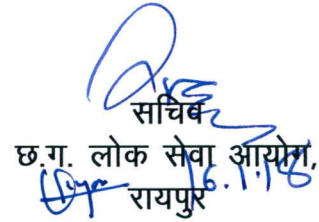 सचिव
छ.ग. लोक सेवा आयोग,
रायपुर
16.1.18